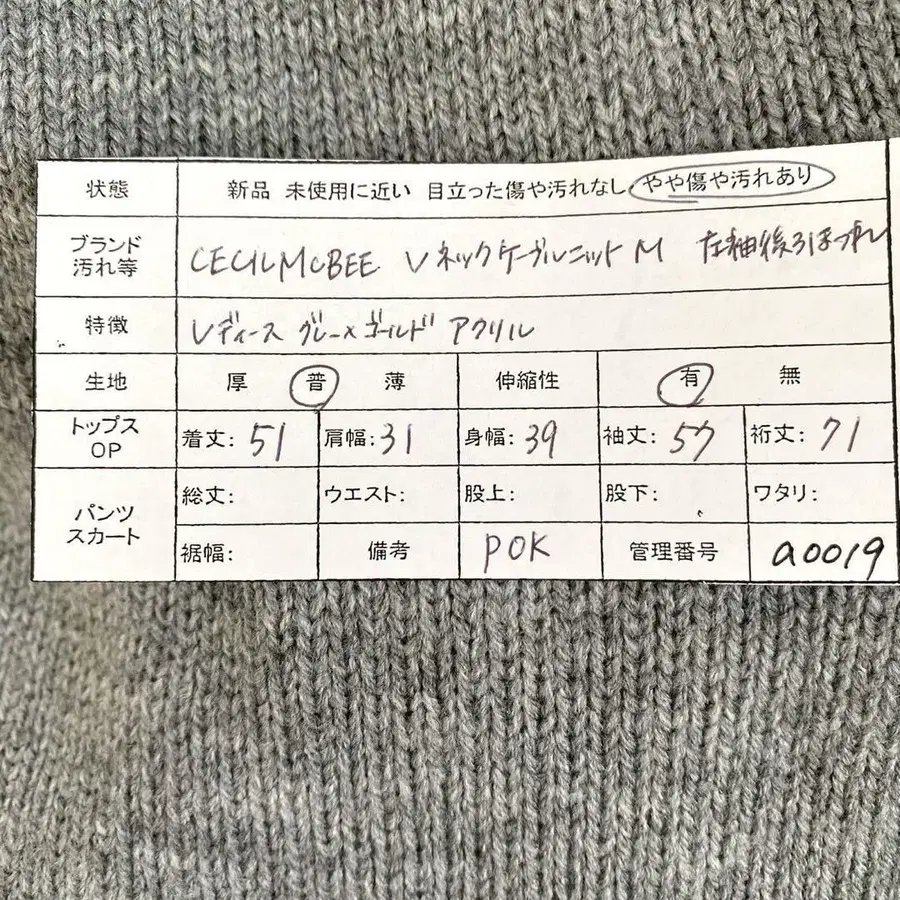 状態 新品 未使用に近い 目立った傷や汚れなし やや傷や汚れあり
ブランド
汚れ等 CECIL McBEE Vネックケーブルニット M 左袖後引ほつれ
特徴 レディース グレー×ゴールド アクリル
生地 厚 普 薄 伸縮性 有 無
トップス
OP 着丈: 51 肩幅: 31 身幅: 39 袖丈: 57 裄丈: 71
パンツ
スカート 総丈: ウエスト: 股上: 股下: ワタリ:
裾幅: 備考 POK 管理番号 a0019